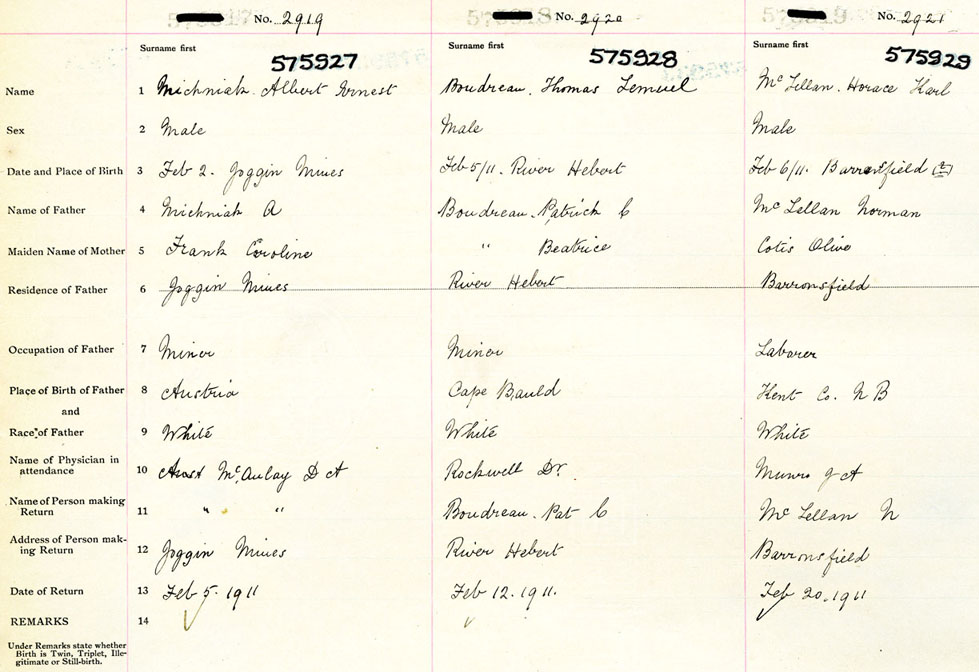 No. 2919 No. 2920 No. 2921
Surname first Surname first Surname first
575927 575928 575929
Name 1 Michniak. Albert Ernest Boudreau. Thomas Lemuel Mc Lellan. Horace Karl
Sex 2 Male Male Male
Date and Place of Birth 3 Feb 2. Joggin Mines Feb 5/11. River Hebert Feb 6/11. Barronsfield
Name of Father 4 Michniak A Boudreau. Patrick C Mc Lellan Norman
Maiden Name of Mother 5 Frank Caroline " Beatrice Cotis Olive
Residence of Father 6 Joggin Mines River Hebert Barronsfield
Occupation of Father 7 Miner Miner Laborer
Place of Birth of Father 8 Austria Cape Bauld Kent Co. N B
and
Race of Father 9 White White White
Name of Physician in
attendance 10 Mc Aulay D A Rockwell Dr. Munro J A
Name of Person making
Return 11 " " Boudreau. Pat C Mc Lellan N
Address of Person mak-
ing Return 12 Joggin Mines River Hebert Barronsfield
Date of Return 13 Feb 5. 1911 Feb 12. 1911. Feb 20. 1911
REMARKS 14
Under Remarks state whether
Birth is Twin, Triplet, Ille-
gitimate or Still-birth.